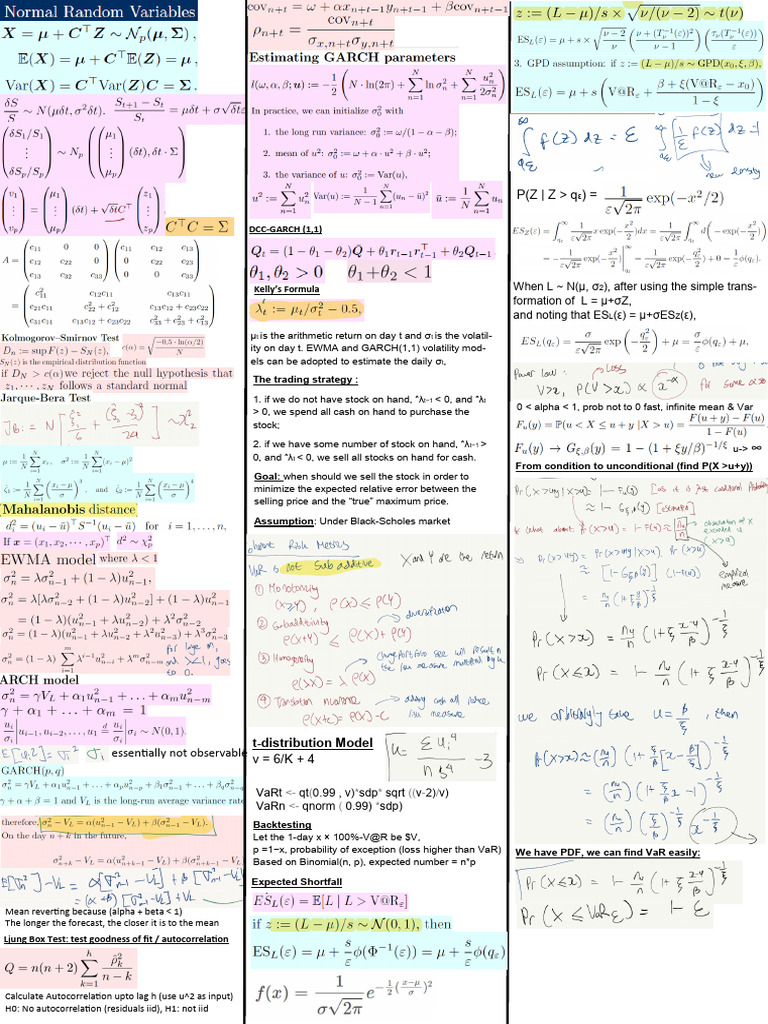 Normal Random Variables
X = μ + C⊤Z ∼ N_p(μ, Σ),
E(X) = μ + C⊤E(Z) = μ,
Var(X) = C⊤Var(Z)C = Σ.
δS/S ∼ N(μδt, σ²δt). (S_{t+1} − S_t)/S_t = μδt + σ√δt ε
(δS1/S1 ⋮ δS_p/S_p) ∼ N_p ((μ1 ⋮ μ_p)(δt), δt · Σ)
(v1 ⋮ v_p) = (μ1 ⋮ μ_p)(δt) + √δt C⊤ (z1 ⋮ z_p),
C⊤C = Σ
A = (c11 0 0; c12 c22 0; c13 c32 c33)(c11 c12 c13; 0 c22 c32; 0 0 c33)
Kolmogorov–Smirnov Test
D_n := sup F(x) − S_N(z), c(α) = √(−0.5·ln(α/2)/N)
S_N(z) is the empirical distribution function
if D_N > c(α) we reject the null hypothesis that
z1, · · · , z_N follows a standard normal
Jarque-Bera Test
μ := 1/N Σ x_i, σ² := 1/N Σ (x_i − μ)²
ς1 := 1/N Σ ((x_i − μ)/σ)³, and ς2 := 1/N Σ ((x_i − μ)/σ)⁴
Mahalanobis distance
d_i² = (u_i − ū)⊤S⁻¹(u_i − ū) for i = 1, . . . , n.
If x = (x1, x2, · · · , x_p)⊤ d² ∼ χ_p²
EWMA model where λ < 1
σ_n² = λσ²_{n−1} + (1 − λ)u²_{n−1},
σ_n² = λ[λσ²_{n−2} + (1 − λ)u²_{n−2}] + (1 − λ)u²_{n−1}
= (1 − λ)(u²_{n−1} + λu²_{n−2}) + λ²σ²_{n−2}
σ_n² = (1 − λ)(u²_{n−1} + λu²_{n−2} + λ²u²_{n−3}) + λ³σ²_{n−3}
σ_n² = (1 − λ) Σ_{i=1}^{m} λ^{i−1}u²_{n−i} + λ^m σ²_{n−m}
for large m,
and λ<1, goes
to 0.
ARCH model
σ_n² = γV_L + α1u²_{n−1} + . . . + α_m u²_{n−m}
γ + α1 + . . . α_m = 1
u_i/σ_i | u_{i−1}, u_{i−2}, ..., u_1 =^d u_i/σ_i ∼ N(0, 1).
E[u_i²] = σ_i² σ_i essentially not observable
GARCH(p, q)
σ_n² = γV_L + α1u²_{n−1} + . . . + α_p u²_{n−p} + β1σ²_{n−1} + . . . + β_qσ²_{n−q}
γ + α + β = 1 and V_L is the long-run average variance rate
therefore, σ_n² − V_L = α(u²_{n−1} − V_L) + β(σ²_{n−1} − V_L).
On the day n + k in the future,
σ²_{n+k} − V_L = α(u²_{n+k−1} − V_L) + β(σ²_{n+k−1} − V_L)
Mean reverting because (alpha + beta < 1)
The longer the forecast, the closer it is to the mean
Ljung Box Test: test goodness of fit / autocorrelation
Q = n(n + 2) Σ_{k=1}^{h} ρ̂_k²/(n − k)
Calculate Autocorrelation upto lag h (use u^2 as input)
H0: No autocorrelation (residuals iid), H1: not iid
cov_{n+t} = ω + αx_{n+t−1}y_{n+t−1} + βcov_{n+t−1}
ρ_{n+t} = cov_{n+t}/(σ_{x,n+t}σ_{y,n+t})
Estimating GARCH parameters
l(ω, α, β; u) := −1/2 (N · ln(2π) + Σ ln σ_n² + Σ u_n²/2σ_n²)
In practice, we can initialize σ_0² with
1. the long run variance: σ_0² := ω/(1 − α − β);
2. mean of u²: σ_0² := ω + α · u² + β · u²;
3. the variance of u: σ_0² := Var(u),
u² := 1/N Σ u_n² Var(u) := 1/(N − 1) Σ (u_n − ū)² ū := 1/N Σ u_n
DCC-GARCH (1,1)
Q_t = (1 − θ1 − θ2)Q̄ + θ1r_{t−1}r⊤_{t−1} + θ2Q_{t−1}
θ1, θ2 > 0 θ1+θ2 < 1
Kelly's Formula
λ_t* := μ_t/σ_t² − 0.5,
μt is the arithmetic return on day t and σt is the volatil-
ity on day t. EWMA and GARCH(1,1) volatility mod-
els can be adopted to estimate the daily σt,
The trading strategy :
1. if we do not have stock on hand, ^λt−1 < 0, and ^λt
> 0, we spend all cash on hand to purchase the
stock;
2. if we have some number of stock on hand, ^λt−1 >
0, and ^λt < 0, we sell all stocks on hand for cash.
Goal: when should we sell the stock in order to
minimize the expected relative error between the
selling price and the "true" maximum price.
Assumption: Under Black-Scholes market
Coherent Risk Metrics
VaR is not Sub additive X and Y are the return
① Monotonicity
(X≥Y), ρ(X) ≤ ρ(Y)
② Subadditivity diversification
ρ(X+Y) ≤ ρ(X) + ρ(Y)
③ Homogeneity
ρ(λX) = λ ρ(X)
④ Translation invariance adding cash will reduce
ρ(X+c) = ρ(X) − c risk measure
t-distribution Model
v = 6/K + 4
VaRt <- qt(0.99 , v)*sdp* sqrt ((v-2)/v)
VaRn <- qnorm ( 0.99) *sdp)
Backtesting
Let the 1-day x × 100%-V@R be $V,
p =1−x, probability of exception (loss higher than VaR)
Based on Binomial(n, p), expected number = n*p
Expected Shortfall
ES_L(ε) = E[L | L > V@R_ε]
if z := (L − μ)/s ∼ N(0, 1), then
ES_L(ε) = μ + s/ε φ(Φ⁻¹(ε)) = μ + s/ε φ(q_ε)
f(x) = 1/(σ√2π) e^{−1/2((x−μ)/σ)²}
z := (L − μ)/s × √(ν/(ν − 2)) ∼ t(ν)
ES_L(ε) = μ + s × √((ν−2)/ν) ((ν + (T_ν⁻¹(ε))²)/(ν−1)) (τ_ν(T_ν⁻¹(ε))/ε)
3. GPD assumption: if z := (L − μ)/s ∼ GPD(x0, ξ, β),
ES_L(ε) = μ + s (V@R_ε + (β + ξ(V@R_ε − x0))/(1 − ξ))
∫_{qε}^{∞} f(z) dz = ε ∫_{qε}^{∞} 1/ε f(z) dz = 1
new density
P(Z | Z > qε) = 1/(ε√2π) exp(−x²/2)
When L ~ N(μ, σ2), after using the simple trans-
formation of L = μ+σZ,
and noting that ESL(ε) = μ+σESz(ε),
ES_L(q_ε) = σ/(ε√2π) exp(−q_ε²/2) + μ = σ/ε φ(q_ε) + μ,
Loss
Power law: V>x, P(V>x) ∝ x^{−α} for some α>0
0 < alpha < 1, prob not to 0 fast, infinite mean & Var
F_u(y) = P(u < X ≤ u + y | X > u) = (F(u + y) − F(u))/(1 − F(u))
F_u(y) → G_{ξ,β}(y) = 1 − (1 + ξy/β)^{−1/ξ} u-> ∞
From condition to unconditional (find P(X >u+y))
Pr(X>x) = n_u/n (1 + ξ (x−u)/β)^{−1/ξ}
Pr(X≤x) = 1 − n_u/n (1 + ξ (x−u)/β)^{−1/ξ}
we arbitrarily take u = β/ξ, then
Pr(X>x) ≈ (n_u/n) (1 + ξ/β [x − β/ξ])^{−1/ξ}
= (n_u/n) (1 + ξ/β x − 1)^{−1/ξ}
= (n_u/n) (ξ/β)^{−1/ξ} x^{−1/ξ}
We have PDF, we can find VaR easily:
Pr(X≤x) = 1 − n_u/n (1 + ξ (x−u)/β)^{−1/ξ}
Pr(X ≤ VaR_ε) = 1 − ε